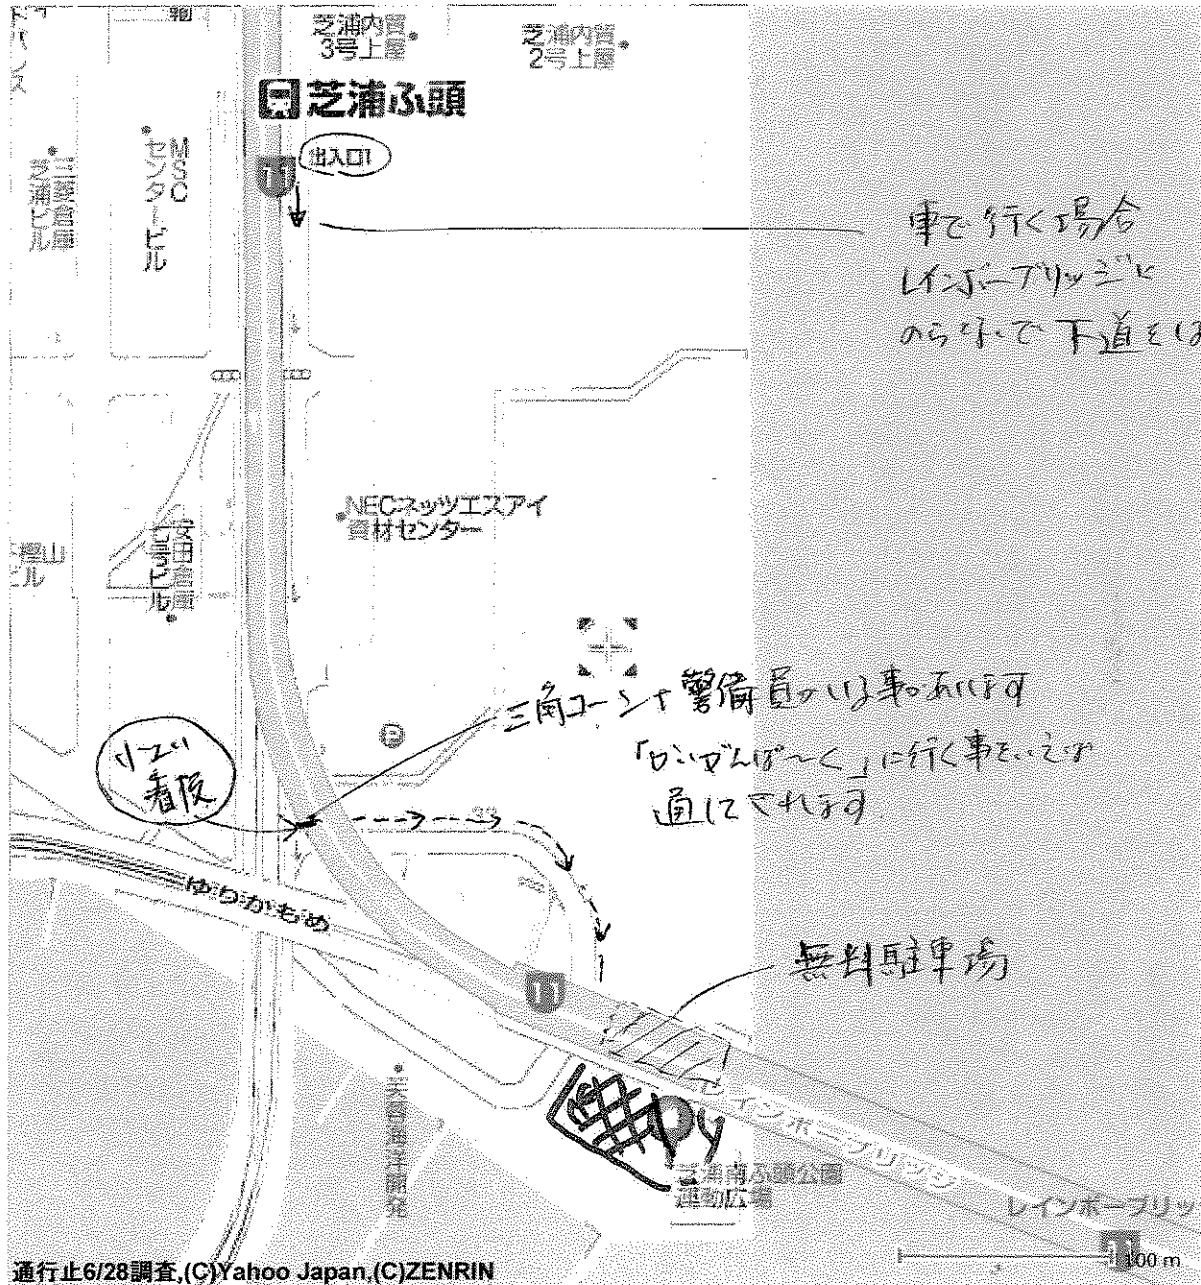 芝浦内貿
3号上屋
芝浦内貿
2号上屋
芝浦ふ頭
11
出入口1
MSC
センタービル
三菱倉庫
芝浦ビル
車で行く場合
レインボーブリッジに
のらないで下道をは
NECネッツエスアイ
資材センター
安田倉庫
樫山
ビル
三角コーンや警備員がいる事があります
「かいがんぱーく」に行く事をいえば
通してくれます
小さい
看板
P
ゆりかもめ
無料駐車場
11
レインボーブリッジ
芝浦南ふ頭公園
運動広場
レインボーブリッ
11
100 m
通行止6/28調査,(C)Yahoo Japan,(C)ZENRIN